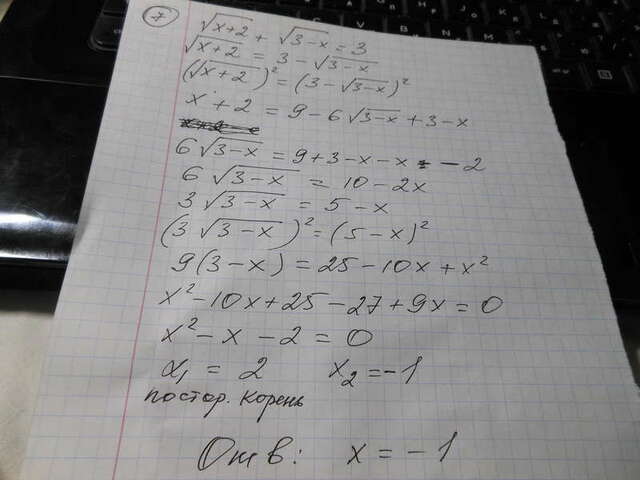 7
√x+2 + √3-x = 3
√x+2 = 3 - √3-x
(√x+2)² = (3 - √3-x)²
x + 2 = 9 - 6√3-x + 3 - x
6√3-x = 9 + 3 - x - x - 2
6√3-x = 10 - 2x
3√3-x = 5 - x
(3√3-x)² = (5 - x)²
9(3 - x) = 25 - 10x + x²
x² - 10x + 25 - 27 + 9x = 0
x² - x - 2 = 0
x₁ = 2 x₂ = -1
постор. корень
Отв: x = -1